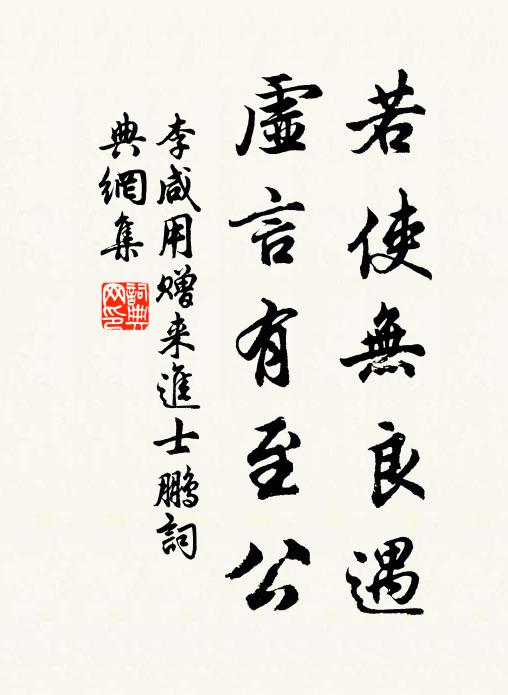 若使無良遇
虛言有至公
李咸用赠来進士鵬詞
典網集
詞典
网印